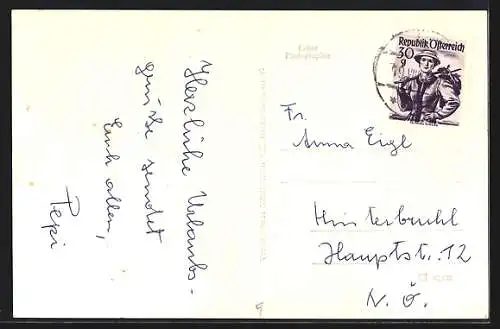 Herzliche Urlaubs-
grüsse sendet
Euch allen,
Pepi
Echte
Photographie
Republik Österreich
30
g
Fr.
Anna Eigl
Hinterbrühl
Hauptstr. 12
N.Ö.